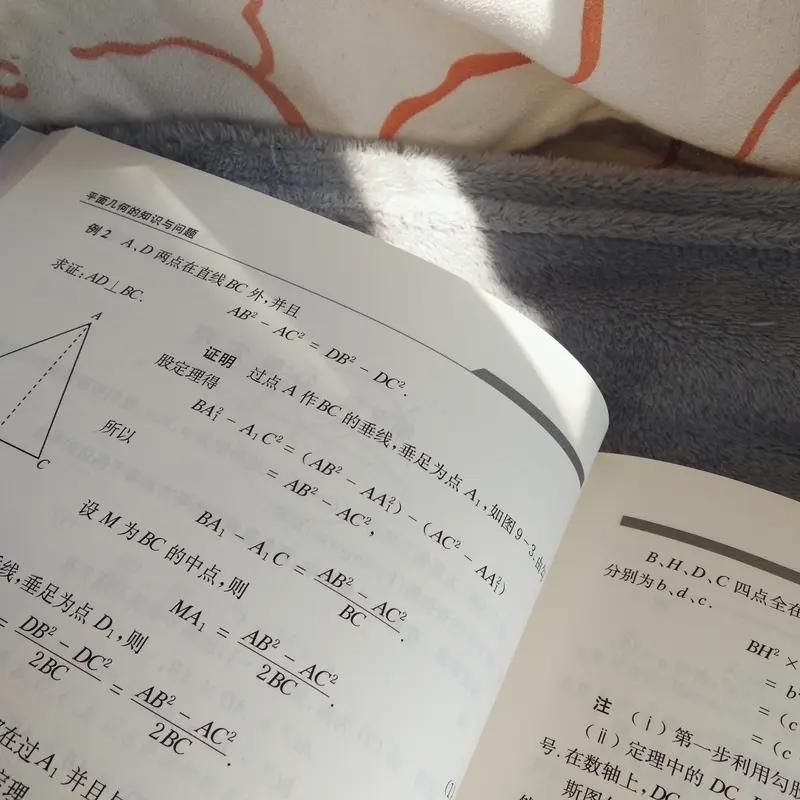 平面几何的知识与问题
例2 A、D两点在直线BC外,并且
AB² − AC² = DB² − DC².
求证:AD⊥BC.
证明 过点A作BC的垂线,垂足为点A₁,如图9-3.由勾
股定理得
BA₁² − A₁C² = (AB² − AA₁²) − (AC² − AA₁²)
= AB² − AC²,
所以
BA₁ − A₁C = \frac{AB² − AC²}{BC}.
设M为BC的中点,则
MA₁ = \frac{AB² − AC²}{2BC}.
线,垂足为点D₁,则
= \frac{DB² − DC²}{2BC} = \frac{AB² − AC²}{2BC}.
在过A₁并且与
定理
A
C
B、H、D、C四点全在
分别为b、d、c.
BH² ×
= b
= (c
= (c
注 (ⅰ)第一步利用勾股
(ⅱ)定理中的DC、
号.在数轴上,DC
斯图